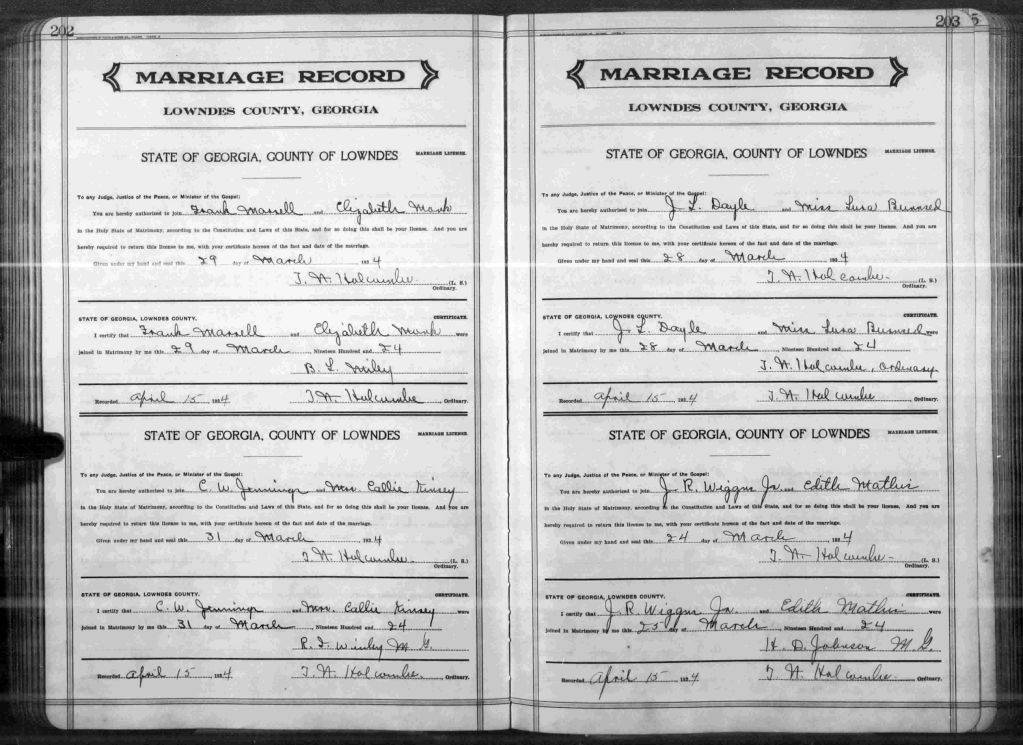 202
MARRIAGE RECORD
LOWNDES COUNTY, GEORGIA
STATE OF GEORGIA, COUNTY OF LOWNDES MARRIAGE LICENSE.
To any Judge, Justice of the Peace, or Minister of the Gospel:
You are hereby authorized to join Frank Marsell and Elizabeth Monk
in the Holy State of Matrimony, according to the Constitution and Laws of this State, and for so doing this shall be your license. And you are
hereby required to return this license to me, with your certificate hereon of the fact and date of the marriage.
Given under my hand and seal this 29 day of March 1924
T. W. Holcombe (L. S.)
Ordinary.
STATE OF GEORGIA, LOWNDES COUNTY. CERTIFICATE.
I certify that Frank Marsell and Elizabeth Monk were
joined in Matrimony by me this 29 day of March, Nineteen Hundred and 24
B. L. Miley
Recorded April 15, 1924 T. W. Holcombe Ordinary.
STATE OF GEORGIA, COUNTY OF LOWNDES MARRIAGE LICENSE.
To any Judge, Justice of the Peace, or Minister of the Gospel:
You are hereby authorized to join C. W. Jennings and Mrs. Callie Kinsey
in the Holy State of Matrimony, according to the Constitution and Laws of this State, and for so doing this shall be your license. And you are
hereby required to return this license to me, with your certificate hereon of the fact and date of the marriage.
Given under my hand and seal this 31 day of March 1924
T. W. Holcombe (L. S.)
Ordinary.
STATE OF GEORGIA, LOWNDES COUNTY. CERTIFICATE.
I certify that C. W. Jennings and Mrs. Callie Kinsey were
joined in Matrimony by me this 31 day of March, Nineteen Hundred and 24
R. F. M. G.
Recorded April 15, 1924 T. W. Holcombe Ordinary.
203 5
MARRIAGE RECORD
LOWNDES COUNTY, GEORGIA
STATE OF GEORGIA, COUNTY OF LOWNDES MARRIAGE LICENSE.
To any Judge, Justice of the Peace, or Minister of the Gospel:
You are hereby authorized to join J. L. Dayle and Miss Lura Burnsed
in the Holy State of Matrimony, according to the Constitution and Laws of this State, and for so doing this shall be your license. And you are
hereby required to return this license to me, with your certificate hereon of the fact and date of the marriage.
Given under my hand and seal this 28 day of March 1924
T. W. Holcombe (L. S.)
Ordinary.
STATE OF GEORGIA, LOWNDES COUNTY. CERTIFICATE.
I certify that J. L. Dayle and Miss Lura Burnsed were
joined in Matrimony by me this 28 day of March, Nineteen Hundred and 24
T. W. Holcombe, Ordinary
Recorded April 15, 1924 T. W. Holcombe Ordinary.
STATE OF GEORGIA, COUNTY OF LOWNDES MARRIAGE LICENSE.
To any Judge, Justice of the Peace, or Minister of the Gospel:
You are hereby authorized to join J. R. Wiggns Jr. and Edith Mathis
in the Holy State of Matrimony, according to the Constitution and Laws of this State, and for so doing this shall be your license. And you are
hereby required to return this license to me, with your certificate hereon of the fact and date of the marriage.
Given under my hand and seal this 24 day of March 1924
T. W. Holcombe (L. S.)
Ordinary.
STATE OF GEORGIA, LOWNDES COUNTY. CERTIFICATE.
I certify that J. R. Wiggns Jr. and Edith Mathis were
joined in Matrimony by me this 25 day of March, Nineteen Hundred and 24
H. D. Johnson M. G.
Recorded April 15, 1924 T. W. Holcombe Ordinary.